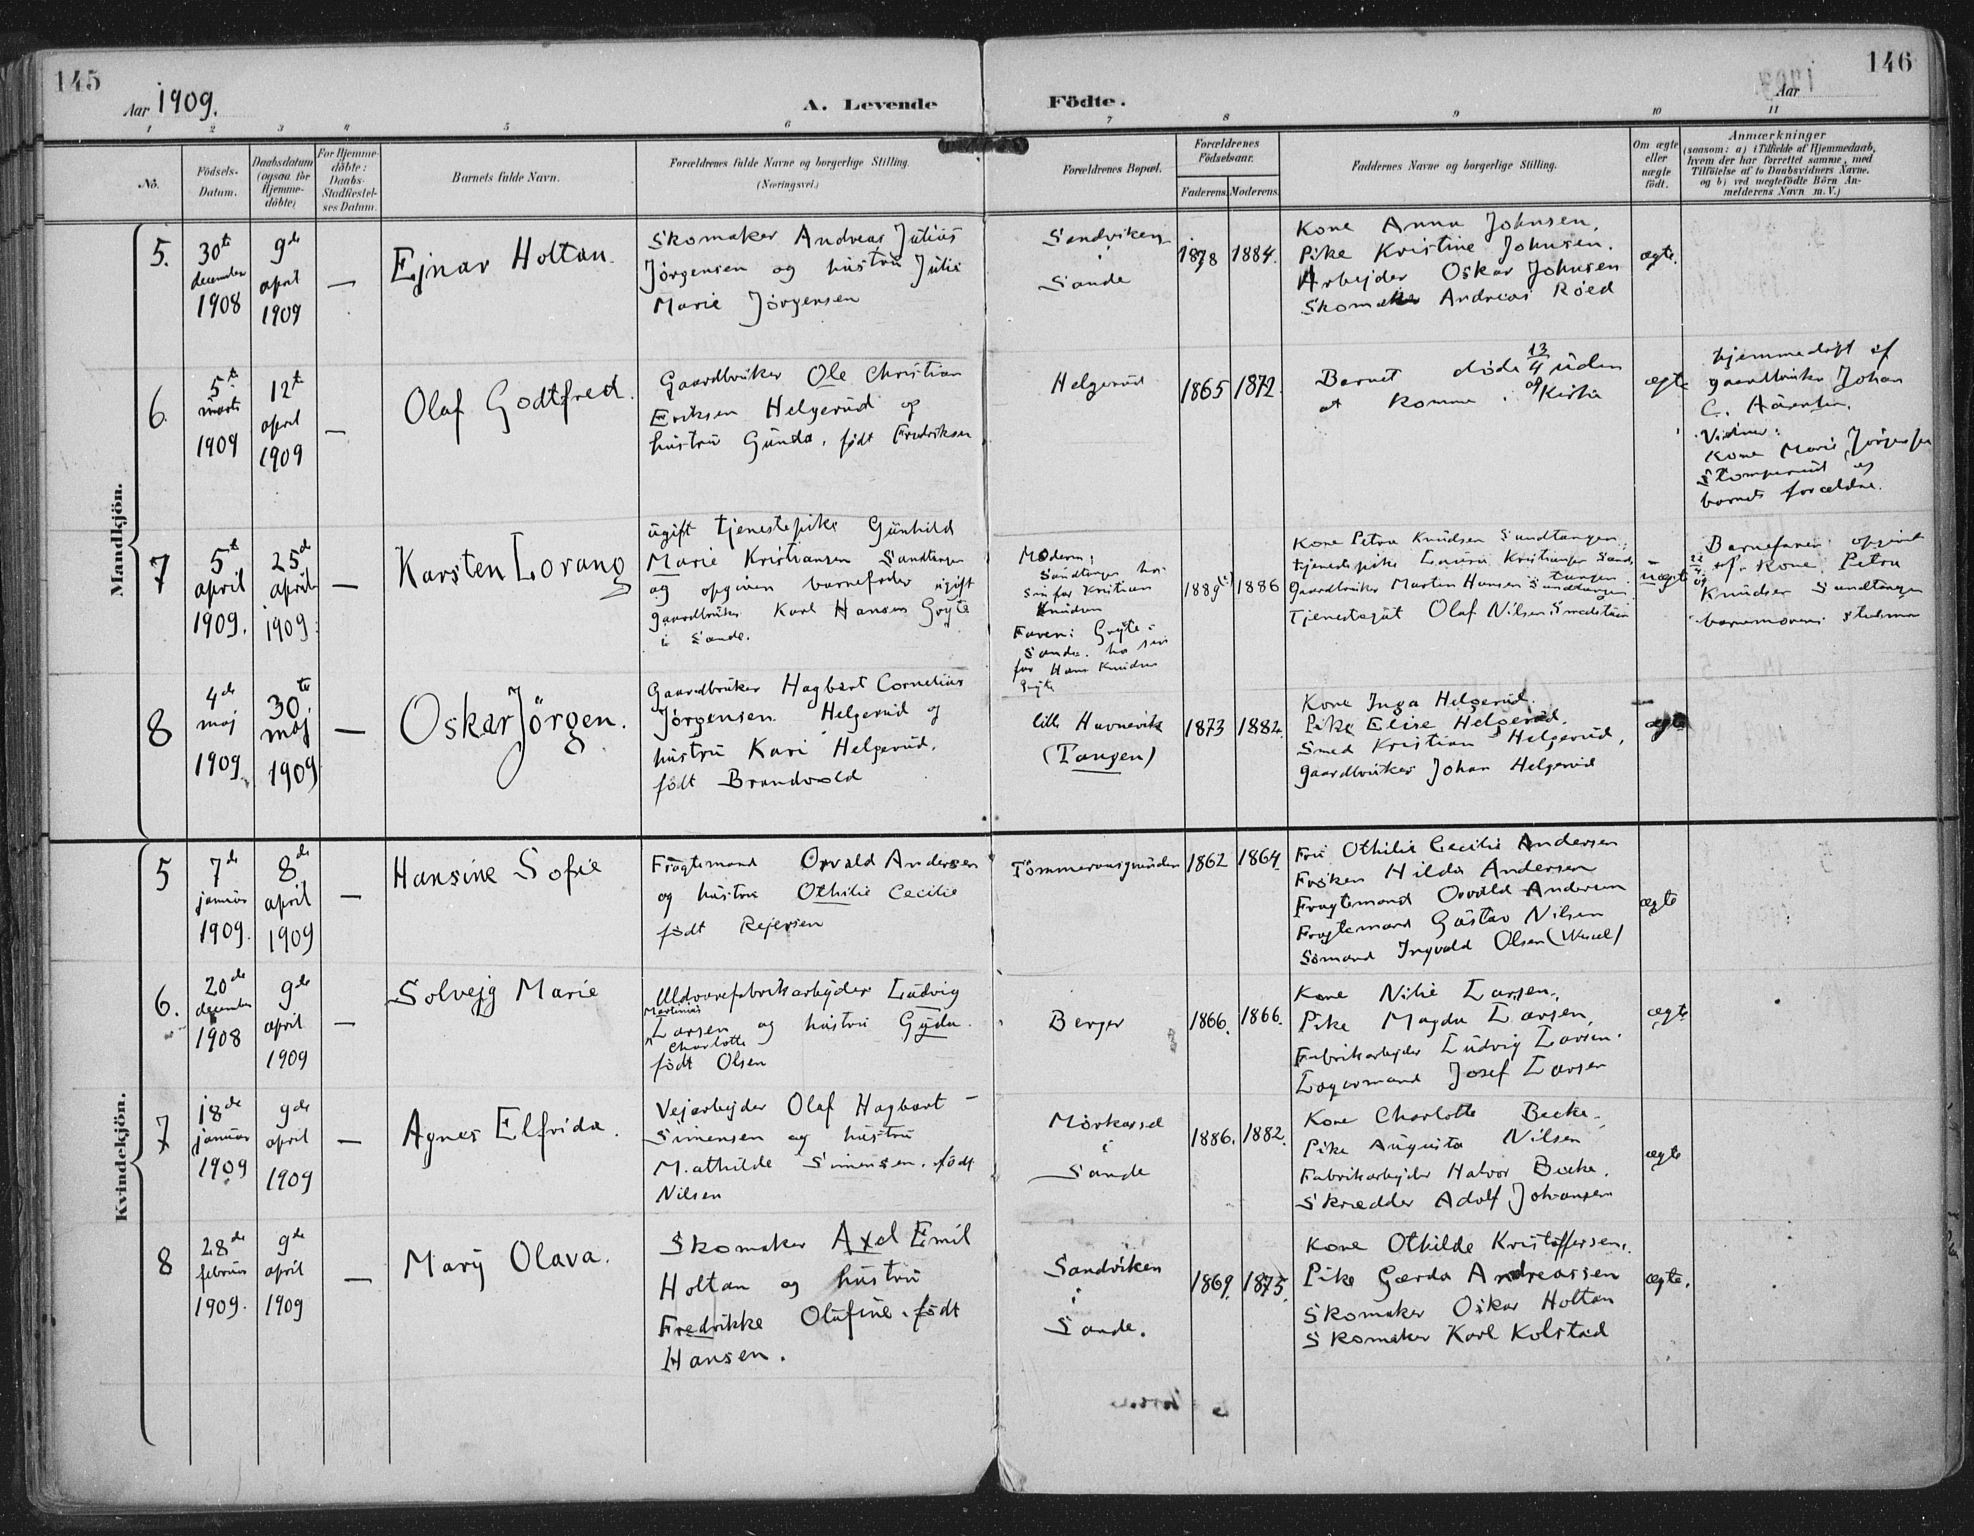 145
146
Aar 1909.
A. Levende Födte.
Aar
1 2 3 4 5 6 7 8 9 10 11
No.
Födsels-
Datum.
Daabsdatum
(ogsaa for
Hjemme-
döbte)
For Hjemme-
döbte:
Daabs-
Stadfæstel-
ses Datum.
Barnets fulde Navn.
Forældrenes fulde Navne og borgerlige Stilling.
(Næringsvei.)
Forældrenes Bopæl.
Forældrenes
Födselsaar.
Faderens. Moderens.
Faddernes Navne og borgerlige Stilling.
Om ægte
eller
uægte
födt.
Anmærkninger
(saasom: a) i Tilfælde af Hjemmedaab,
hvem der har forrettet samme, med
Tilföielse af to Daabsvidners Navne.
og b) ved uægtefödte Börn An-
melderens Navn m. V.)
Mandkjön.
5.
30te
december
1908
9de
april
1909
—
Ejnar Holtan.
Skomaker Andreas Julius
Jörgensen og hustru Julie
Marie Jörgensen
Sandviken
i
Sande
1878
1884.
Kone Anna Johnsen.
Pike Kristine Johnsen.
Arbejder Oskar Johnsen
Skomaker Andreas Röed
ægte.
6.
5te
marts
1909
12te
april
1909
—
Olaf Godtfred.
Gaardbruker Ole Christian
Eriksen Helgerud og
hustru Gunda, födt Fredriksen
Helgerud
1865
1872.
Barnet döde 13/4 09 uden
at komme i Kirke
ægte
hjemmedöpt af
gaardbruker Johan
C.
Vidner:
Kone Marie
og
barnets forældre.
7
5te
april
1909.
25de
april
1909.
—
Karsten Lorang
ugift tjenestepike Gunhild
Marie Kristiansen Sandtangen
og opgiven barnefader ugift
gaardbruker Karl Hansen Gryte
i Sande.
Moderen:
Sandtangen hos
sin far Kristian
Knudsen
Faren: Gryte i
Sande. hos sin
far Hans Knudsen
Gryte
1889(?)
1886
Kone Petra Knudsen Sandtangen.
tjenestepike Laura Kristiansen Sand-
tangen.
Gaardbruker Martin Hansen Sandtangen
Tjenestegut Olaf Nilsen Smedstuen
uægte
Barnefaren opgivet
22/4 09 af kone Petra
Knudsen Sandtangen
barnemorens stedmor
8
4de
maj
1909.
30te
maj
1909
—
Oskar Jörgen.
Gaardbruker Hagbart Cornelius
Jörgensen Helgerud og
hustru Kari Helgerud.
födt Brandvold
lille Havnevik
(Tangen)
1873
1882.
Kone Inga Helgerud.
Pike Elise Helgerud.
Smed Kristian Helgerud,
gaardbruker Johan Helgerud
ægte
Kvindekjön.
5
7de
januar
1909.
8de
april
1909
—
Hansine Sofie
Fragtemand Osvald Andersen
og hustru Othilie Cecilie
födt Rejersen
1862
1864.
Fru Othilie Cecilie Andersen
Fröken Hilda Andersen
Fragtemand Osvald Andersen
Fragtemand Gustav Nilsen
Sömand Ingvald Olsen
ægte
6.
20de
december
1908
9de
april
1909
—
Solvejg Marie
Uldvarefabrikarbejder Ludvig
Martinius
Larsen og hustru Gyda.
Charlotte
födt Olsen
Berger
1866.
1866.
Kone Nilie Larsen.
Pike Magda Larsen,
Fabrikarbejder Ludvig Larsen.
Lagermand Josef Larsen
ægte
7
18de
januar
1909
9de
april
1909
—
Agnes Elfrida.
Vejarbejder Olaf Hagbart
Simensen og hustru
Mathilde Simensen. födt
Nilsen
Mörkassel
i
Sande
1886.
1882.
Kone Charlotte Becke.
Pike Augusta Nilsen
Fabrikarbejder Halvor Becke.
Skrædder Adolf Johansen
ægte
8
28de
februar
1909.
9de
april
1909
—
Mary Olava.
Skomaker Axel Emil
Holtan og hustru
Fredrikke Olufine. födt
Hansen.
Sandviken
i
Sande.
1869.
1875.
Kone Othilde Kristoffersen.
Pike Gærda Andreassen
Skomaker Oskar Holtan
Skomaker Karl Kolstad
ægte.